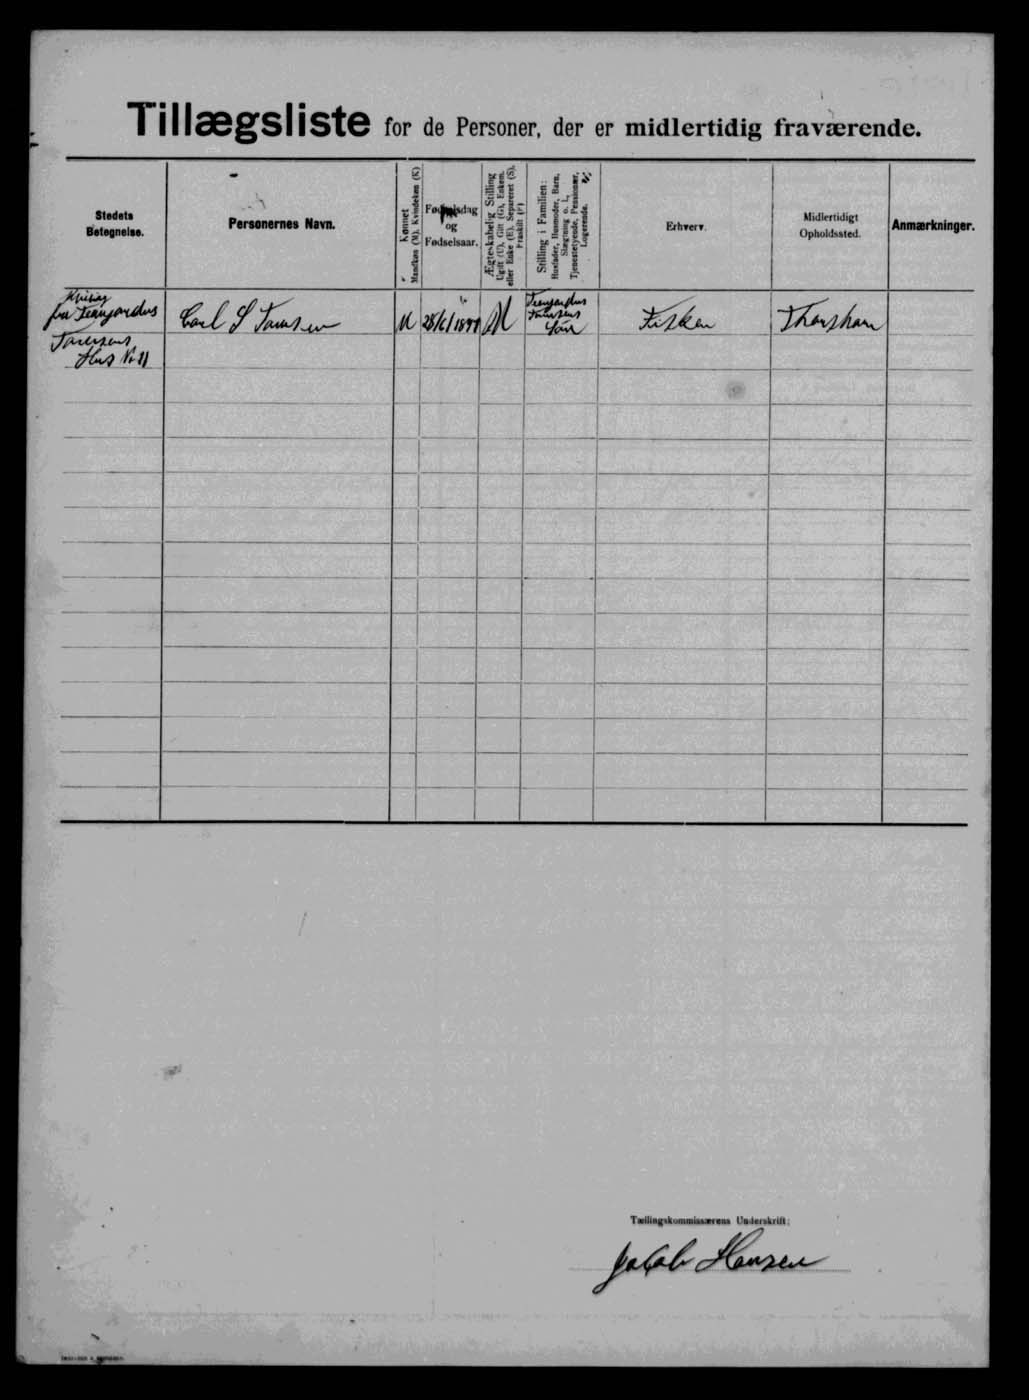 Tillægsliste for de Personer, der er midlertidig fraværende.
Stedets
Betegnelse.
Personernes Navn.
Kønnet
Mandkøn (M). Kvindekøn (K)
Fødselsdag
og
Fødselsaar.
Ægteskabelig Stilling
Ugift (U), Gift (G), Enkem.
eller Enke (E), Separeret (S),
Fraskilt (F)
Stilling i Familien:
Husfader, Husmoder, Barn,
Slægtning o. l.,
Tjenestetyende, Pensionær,
Logerende.
Erhverv.
Midlertidigt
Opholdssted.
Anmærkninger.
Hus No 11
Carl S
M
28/6/1899
Søn
Fisker
Thorshavn
Tællingskommissærens Underskrift:
Jacob Hansen